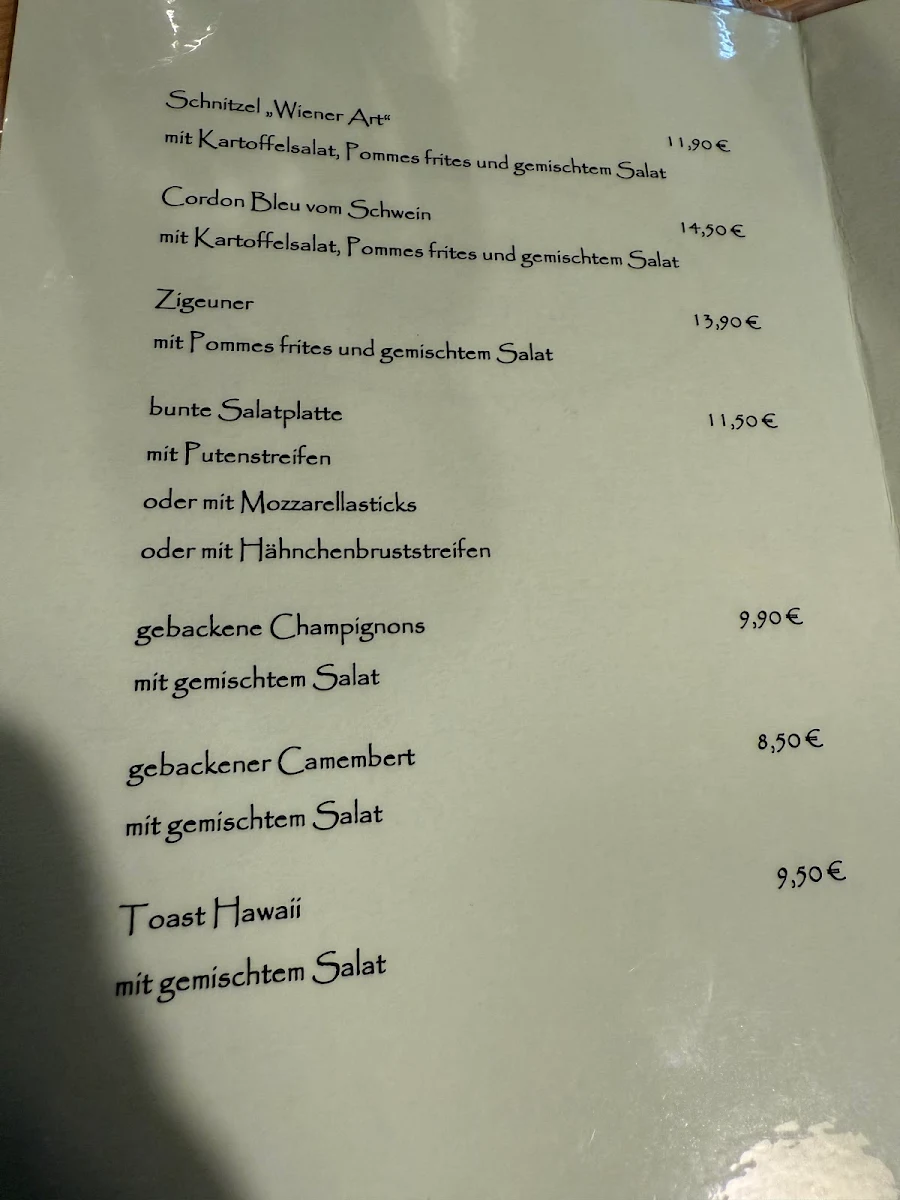 Schnitzel „Wiener Art“
mit Kartoffelsalat, Pommes frites und gemischtem Salat 11,90 €
Cordon Bleu vom Schwein 14,50 €
mit Kartoffelsalat, Pommes frites und gemischtem Salat
Zigeuner 13,90 €
mit Pommes frites und gemischtem Salat
bunte Salatplatte 11,50 €
mit Putenstreifen
oder mit Mozzarellasticks
oder mit Hähnchenbruststreifen
gebackene Champignons 9,90 €
mit gemischtem Salat
gebackener Camembert 8,50 €
mit gemischtem Salat
Toast Hawaii 9,50 €
mit gemischtem Salat